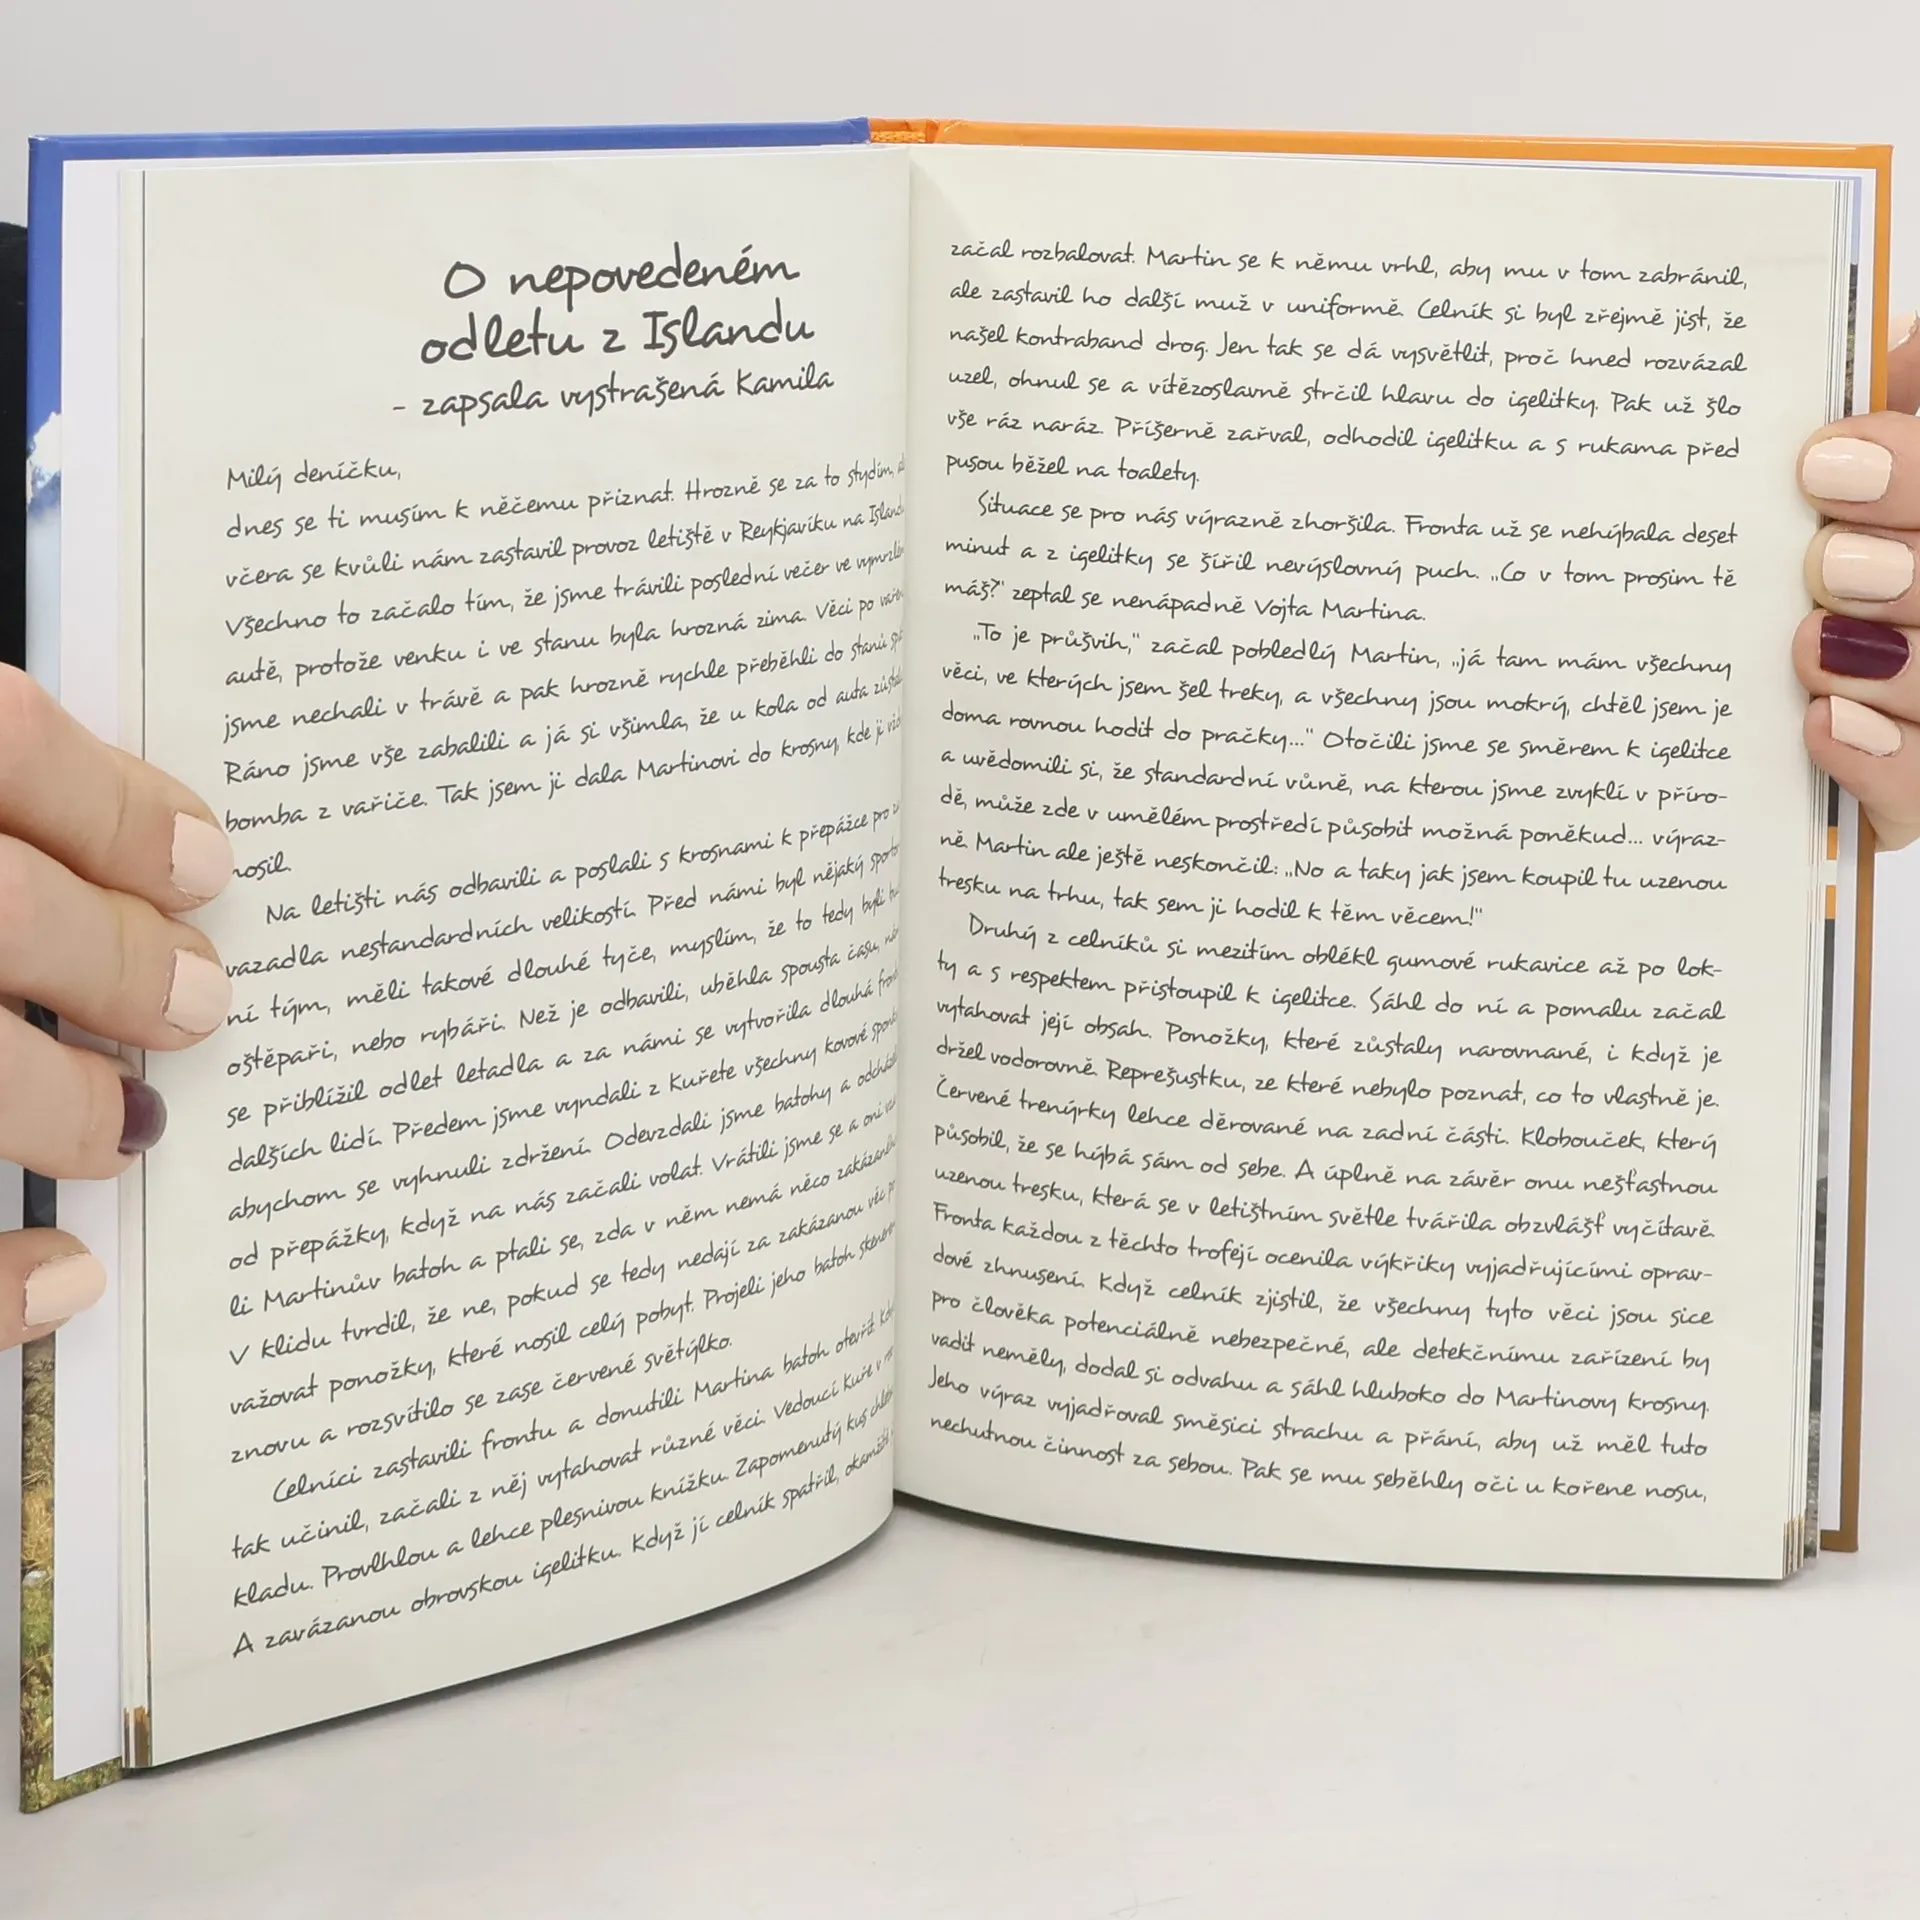 O nepovedeném
odletu z Islandu
- zapsala vystrašená Kamila
Milý deníčku,
dnes se ti musím k něčemu přiznat. Hrozně se za to stydím,
včera se kvůli nám zastavil provoz letiště v Reykjavíku na
Všechno to začalo tím, že jsme trávili poslední večer ve
autě, protože venku i ve stanu byla hrozná zima. Věci po
jsme nechali v trávě a pak hrozně rychle přeběhli do stanů
Ráno jsme vše zabalili a já si všimla, že u kola od auta
bomba z vařiče. Tak jsem ji dala Martinovi do krosny, kde ji
nosil.
Na letišti nás odbavili a poslali s krosnami k přepážce pro
vazadla nestandardních velikostí. Před námi byl nějaký
ní tým, měli takové dlouhé tyče, myslím, že to tedy byli
oštěpaři, nebo rybáři. Než je odbavili, uběhla spousta času,
se přiblížil odlet letadla a za námi se vytvořila dlouhá
dalších lidí. Předem jsme vyndali z Kuřete všechny kovové
abychom se vyhnuli zdržení. Odevzdali jsme batohy a
od přepážky, když na nás začali volat. Vrátili jsme se a oni
li Martinův batoh a ptali se, zda v něm nemá něco
V klidu tvrdil, že ne, pokud se tedy nedají za zakázanou věc
važovat ponožky, které nosil celý pobyt. Projeli jeho batoh
znovu a rozsvítilo se zase červené světýlko.
Celníci zastavili frontu a donutili Martina batoh otevřít.
tak učinil, začali z něj vytahovat různé věci. Vedoucí Kuře v
kladu. Provlhlou a lehce plesnivou knížku. Zapomenutý kus
A zavázanou obrovskou igelitku. Když jí celník spatřil, okamžitě
začal rozbalovat. Martin se k němu vrhl, aby mu v tom zabránil,
ale zastavil ho další muž v uniformě. Celník si byl zřejmě jist, že
našel kontraband drog. Jen tak se dá vysvětlit, proč hned rozvázal
uzel, ohnul se a vítězoslavně strčil hlavu do igelitky. Pak už šlo
vše ráz naráz. Příšerně zařval, odhodil igelitku a s rukama před
pusou běžel na toalety.
Situace se pro nás výrazně zhoršila. Fronta už se nehýbala deset
minut a z igelitky se šířil nevýslovný puch. „Co v tom prosím tě
máš?" zeptal se nenápadně Vojta Martina.
„To je průšvih," začal pobledlý Martin, „já tam mám všechny
věci, ve kterých jsem šel treky, a všechny jsou mokrý, chtěl jsem je
doma rovnou hodit do pračky..." Otočili jsme se směrem k igelitce
a uvědomili si, že standardní vůně, na kterou jsme zvyklí v příro-
dě, může zde v umělém prostředí působit možná poněkud... výraz-
ně. Martin ale ještě neskončil: „No a taky jak jsem koupil tu uzenou
tresku na trhu, tak sem ji hodil k těm věcem!"
Druhý z celníků si mezitím oblékl gumové rukavice až po lok-
ty a s respektem přistoupil k igelitce. Sáhl do ní a pomalu začal
vytahovat její obsah. Ponožky, které zůstaly narovnané, i když je
držel vodorovně. Reprešustku, ze které nebylo poznat, co to vlastně je.
Červené trenýrky lehce děrované na zadní části. Klobouček, který
působil, že se hýbá sám od sebe. A úplně na závěr onu nešťastnou
uzenou tresku, která se v letištním světle tvářila obzvlášť vyčítavě.
Fronta každou z těchto trofejí ocenila výkřiky vyjadřujícími oprav-
dové zhnusení. Když celník zjistil, že všechny tyto věci jsou sice
pro člověka potenciálně nebezpečné, ale detekčnímu zařízení by
vadit neměly, dodal si odvahu a sáhl hluboko do Martinovy krosny.
Jeho výraz vyjadřoval směsici strachu a přání, aby už měl tuto
nechutnou činnost za sebou. Pak se mu seběhly oči u kořene nosu,